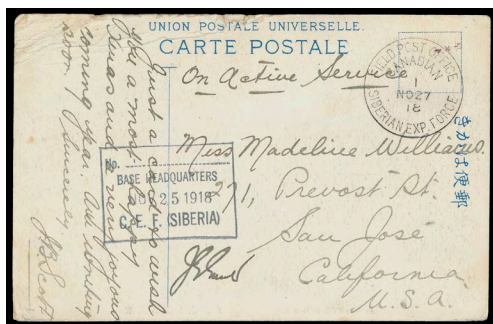 UNION POSTALE UNIVERSELLE.
CARTE POSTALE
On Active Service
FIELD POST OFFICE
CANADIAN
1
NO 27
18
SIBERIAN EXP. FORCE
きかは便郵
Miss Madeline Williams.
271, Prevost St.
San José
California
U.S.A.
No.
BASE HEADQUARTERS
NOV 25 1918
C.E.F. (SIBERIA)
Just a card to wish
you a most happy
Xmas and a very joyous
coming year. Am writing
soon.
Sincerely,
JB Scott